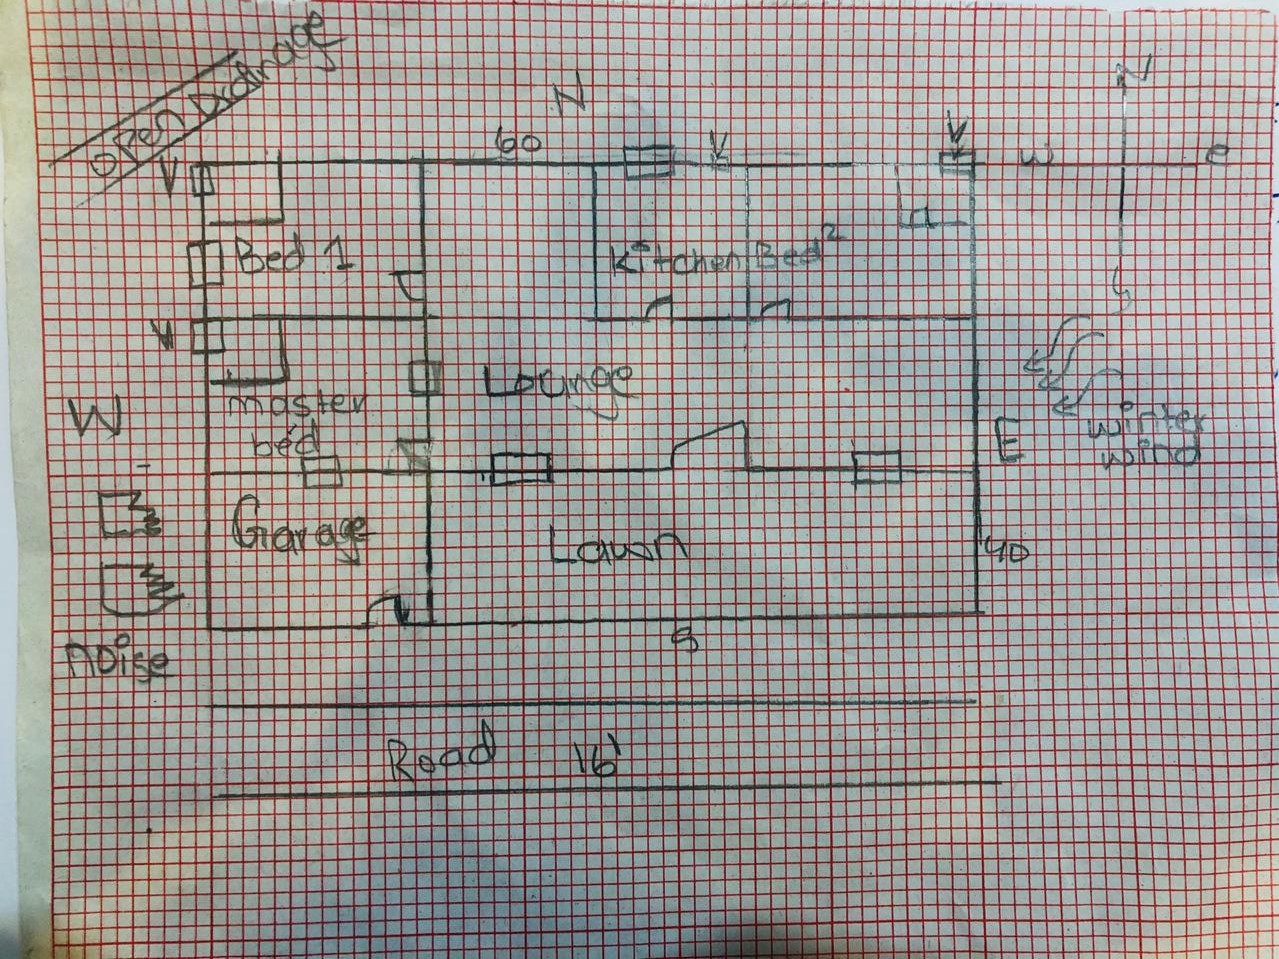 OPen Drainage
N
N
60
V
V
V
W
e
Bed 1
Kitchen
Bed 2
S
V
Lounge
master
bed
W
E
winter
wind
Garage
Lawn
40
noise
S
Road 16'